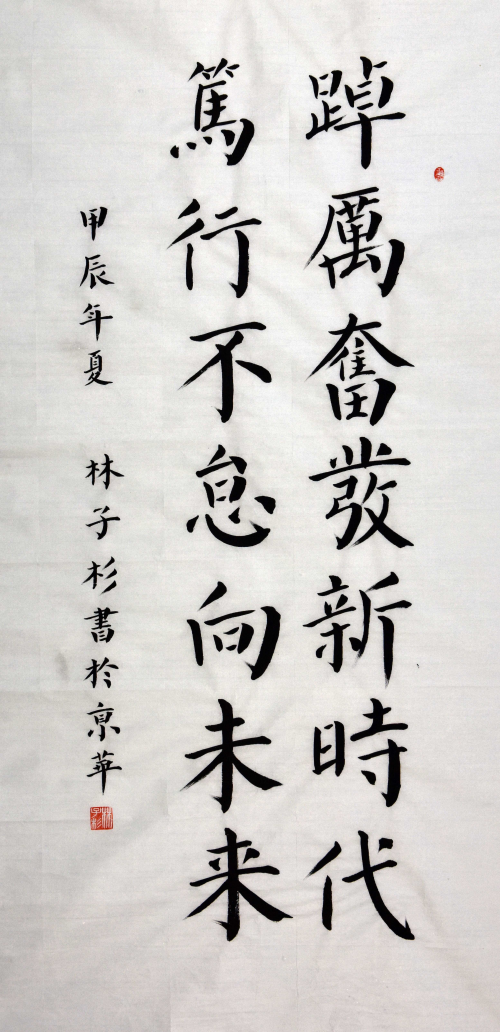 踔厲奮發新時代
篤行不怠向未来
甲辰年夏 林子杉書於京華
林子杉